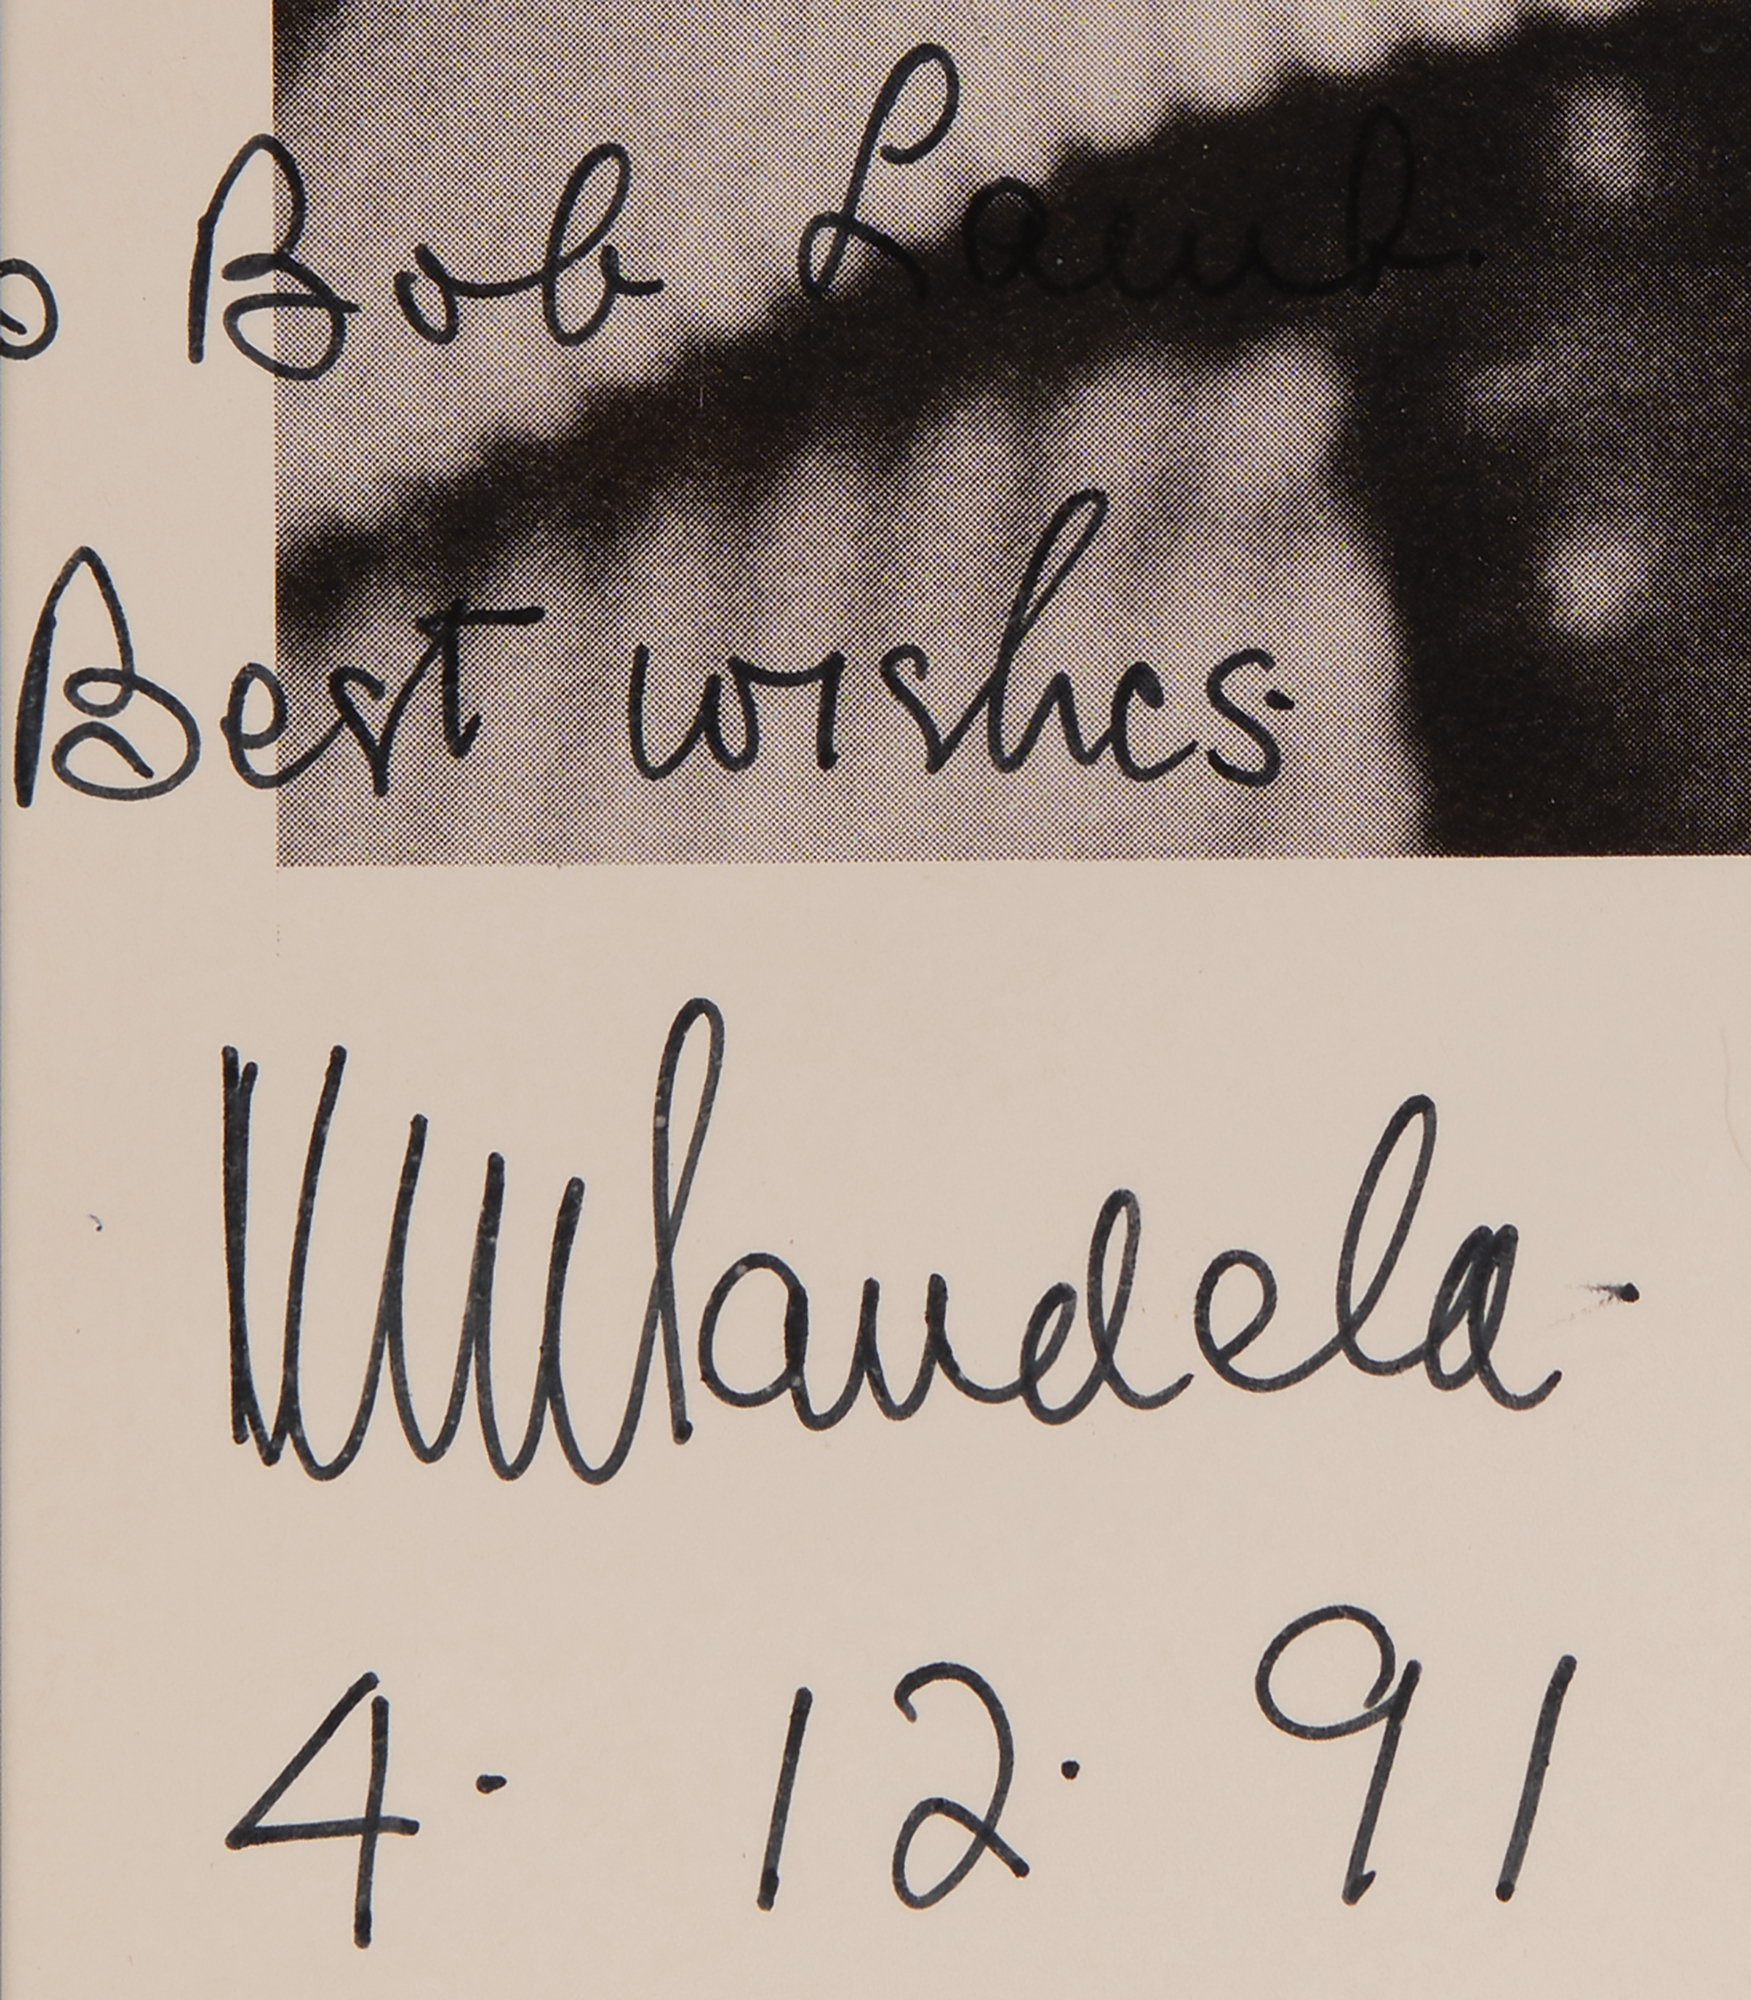 o Bob Lamb.
Best wishes.
NMandela.
4. 12. 91